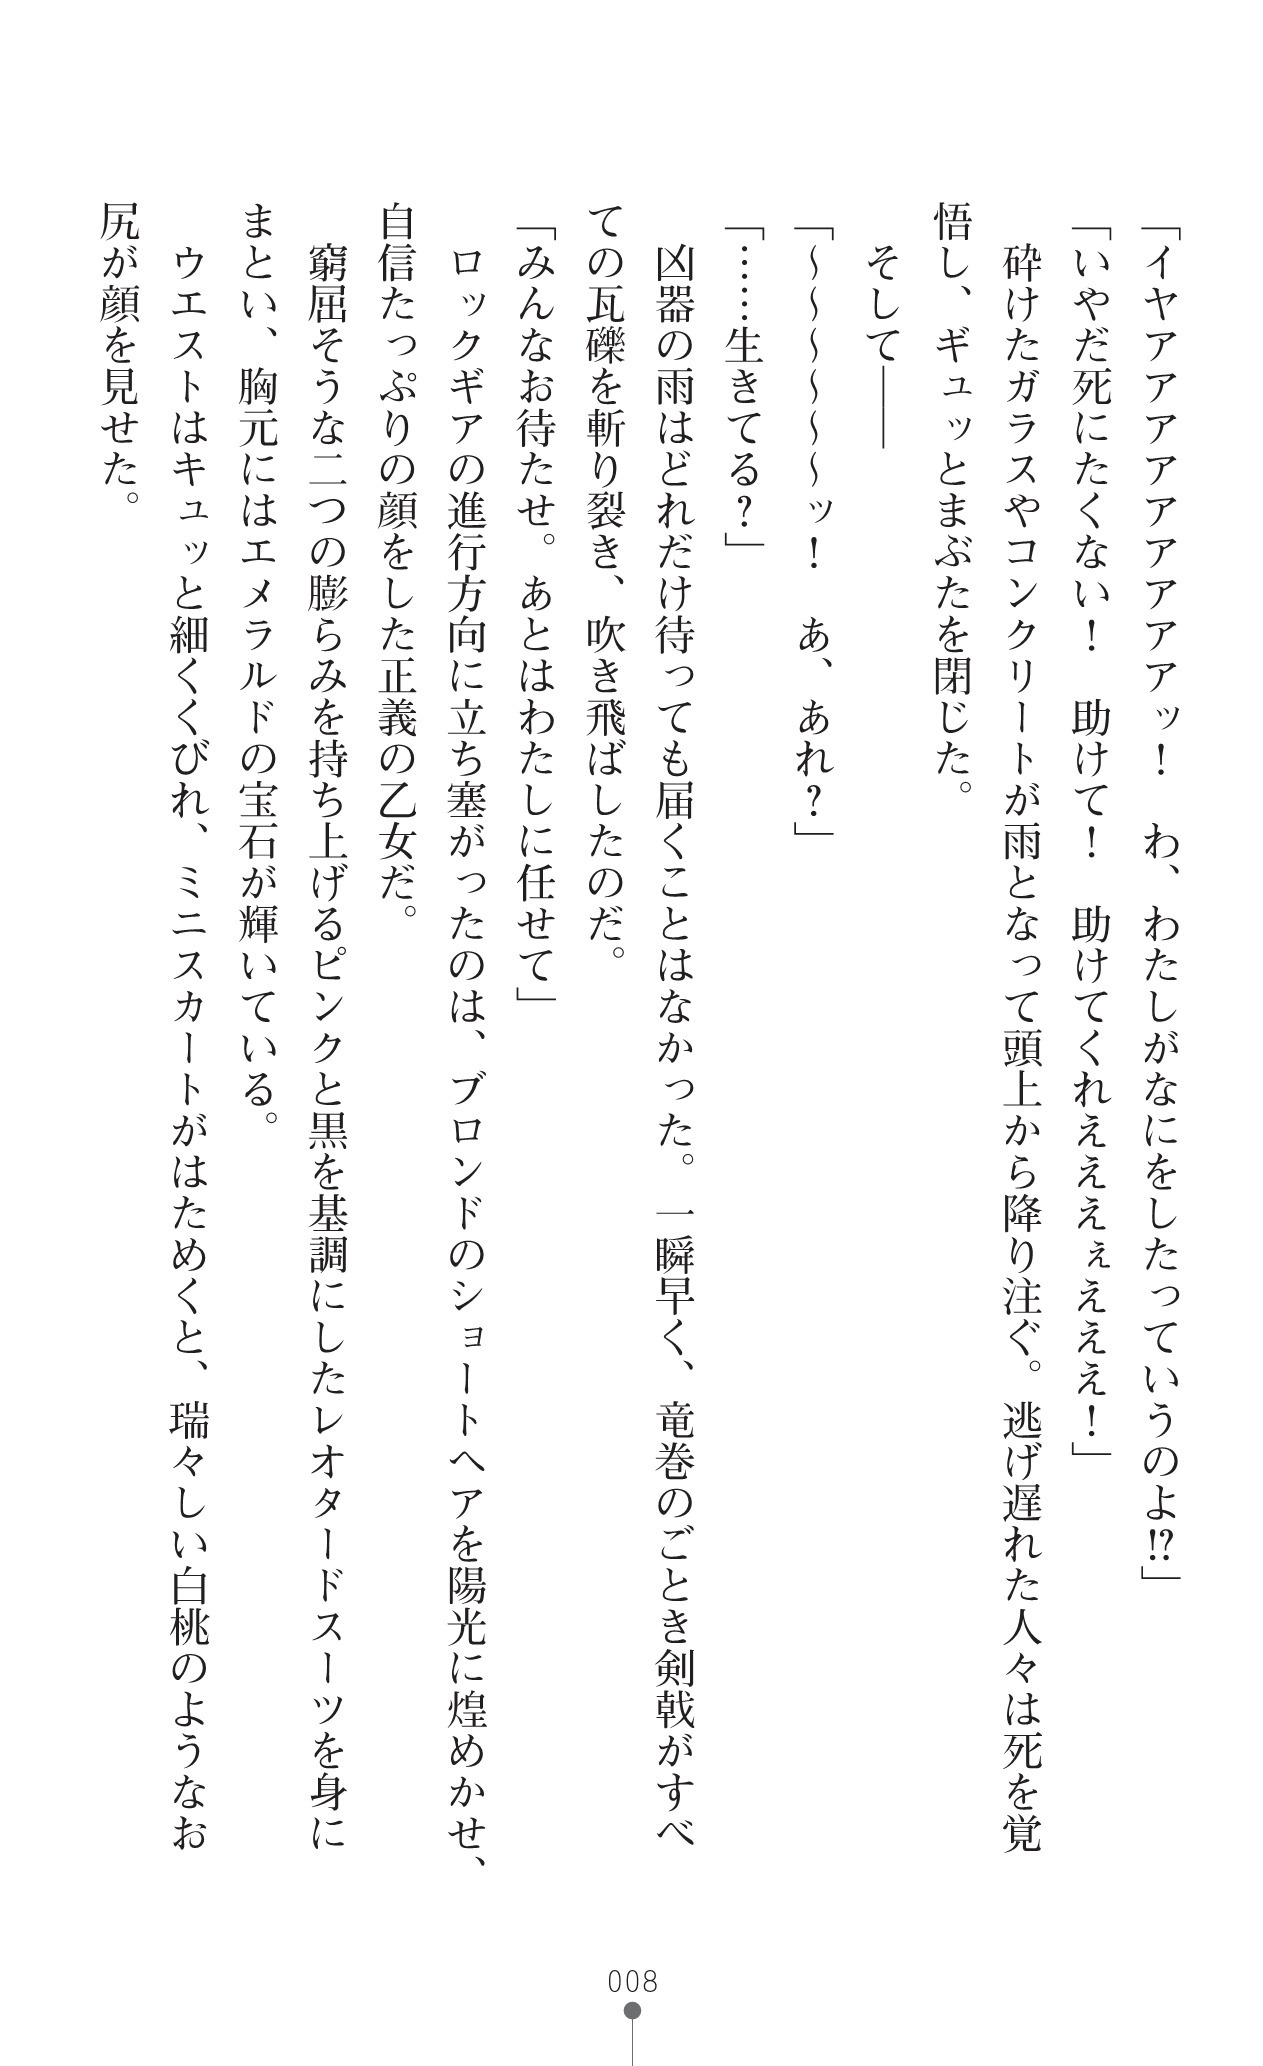 「イヤアアアアアアアアアアッ！　わ、わたしがなにをしたっていうのよ!?」
「いやだ死にたくない！　助けて！　助けてくれえええぇえええ！」
　砕けたガラスやコンクリートが雨となって頭上から降り注ぐ。逃げ遅れた人々は死を覚
悟し、ギュッとまぶたを閉じた。
　そして――
「～～～～～～ッ！　あ、あれ？」
「……生きてる？」
　凶器の雨はどれだけ待っても届くことはなかった。一瞬早く、竜巻のごとき剣戟がすべ
ての瓦礫を斬り裂き、吹き飛ばしたのだ。
「みんなお待たせ。あとはわたしに任せて」
　ロックギアの進行方向に立ち塞がったのは、ブロンドのショートヘアを陽光に煌めかせ、
自信たっぷりの顔をした正義の乙女だ。
　窮屈そうな二つの膨らみを持ち上げるピンクと黒を基調にしたレオタードスーツを身に
まとい、胸元にはエメラルドの宝石が輝いている。
　ウエストはキュッと細くくびれ、ミニスカートがはためくと、瑞々しい白桃のようなお
尻が顔を見せた。
008